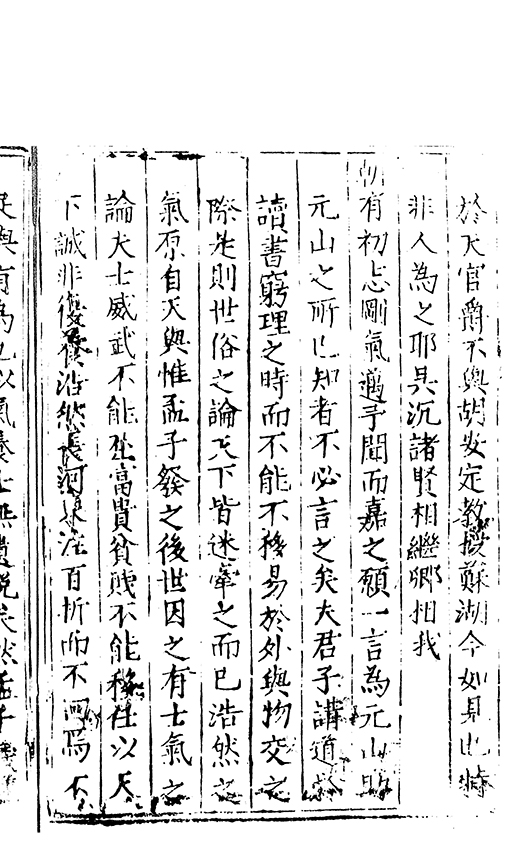 於天官爵不與胡安定教授蘇湖今如見此特
非人為之耶吳沉諸賢相繼鄉相我
朝有初志剛氣邁乎聞而嘉之願一言為元山助
元山之所已知者不必言之矣夫君子講道於
讀書窮理之時而不能不移易於外與物交之
際是則世俗之論天下皆迷窜之而已浩然之
氣原自天與惟孟子發之後世因之有士氣之
論夫士威武不能屈富貴貧賤不能移任以天
下誠非復養浩然長河東注百折而不回焉不
足與有為也以氣養士無遺說矣然孟子